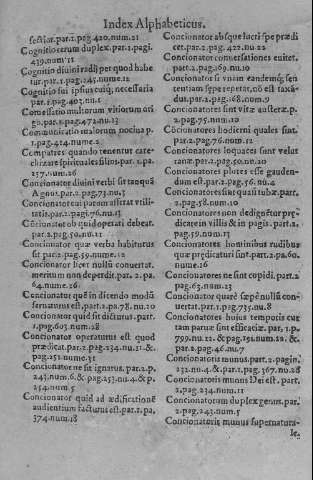 Index Alphabeticus.
fectior. par. 2. pag. 420. num. 21
Cognitio rerum duplex. par. 1. pagi.
439. num. 11
Cognitio diuini radij per quod habe
tur. par. 1. pag. 145. nume. 12
Cognitio sui ipsius cuiq; necessaria
par. 1. pag. 403. nu. 1
Comessatio multarum vitiorum ori
go. par. 1. pag. 472. nu. 13
Communicatio malorum nociua p.
1. pag. 414. nume. 2
Compatres quando tenentur cate-
chizare spirituales filios. par. 1. pa.
257. num. 26
Concionator diuini verbi sit tanquā
Agnus. par. 2. pag. 73. nu. 3
Concionatorem parum afferat vtili-
tatis. par. 2. pagi. 76. nu. 13
Cōcionator ob quid operari debeat.
par. 2. pag. 50. nu. 11
Concionator quæ verba habiturus
sit par. 2. pag. 59. nume. 12
Concionator licet nullū conuertat.
meritum non deperdit. par. 2. pa.
64. nume. 26
Concionator quē in dicendo modū
seruaturus est, part. 2. pa. 78. nu. 10
Concionator quid sit dicturus. part.
1. pag. 603. num. 28
Concionator operaturus est quod
prædicat. par. 2. pag. 234. nu. 21. &.
pag. 251. nume. 31
Concionator ne sit ignatus. par. 2. p.
243. num. 6. & pag. 253. nu. 4. & p.
254. num. 5
Concionator quid ad ædificationē
audientium facturus est. par. 1. pa.
374. num. 18
Concionator absque lucri spe prædi
cet. par. 2. pag. 422. nu. 22
Concionator conuersationes euitet.
part. 2. pag. 169. nu. 10
Concionator si vnam eandemq; sen
tentiam sepe repetat, nō est taxā-
dus. par. 2. pag. 168. num. 9
Concionatores sint vitæ austeræ. p.
2. pag. 75. num. 10
Cōcionatores hodierni quales sint.
par. 2. pag. 76. num. 12
Concionatores loquaces sunt velut
ranæ. par. 2. pag. 50. nu. 20
Concionatores plotes esse gauden-
dum est. par. 2. pag. 56. nu. 4
Concionatores sunt quasi tubæ. part.
2. pag. 58. num. 10
Concionatores non dedignētur prę-
dicare in villis & in pagis. part. 2.
pag. 59. num. 13
Concionatores hominibus rudibus
quæ prædicaturi sint. part. 2. pa. 60.
nume. 16
Concionatores ne sint cupidi. part. 2
pag. 63. num. 23
Concionator quarè sæpē nullū con-
uertat. par. 1. pag. 735. nu. 8
Concionatores huius temporis cur
tam paruæ sint efficaciæ. par. 1. p.
799. nu. 12. & pag. 151. num. 22. &
par. 2. pag. 46. nu. 7
Concionatoris munus. part. 2. pagin.
232. nu. 4. & par. 1. pag. 367. nu. 28
Concionatoris munus Dei est. part.
2. pag. 234. num. 11
Concionatorum duplex genus. par.
2. pag. 243. num. 5
Concionatoris munus supernatura-
le.